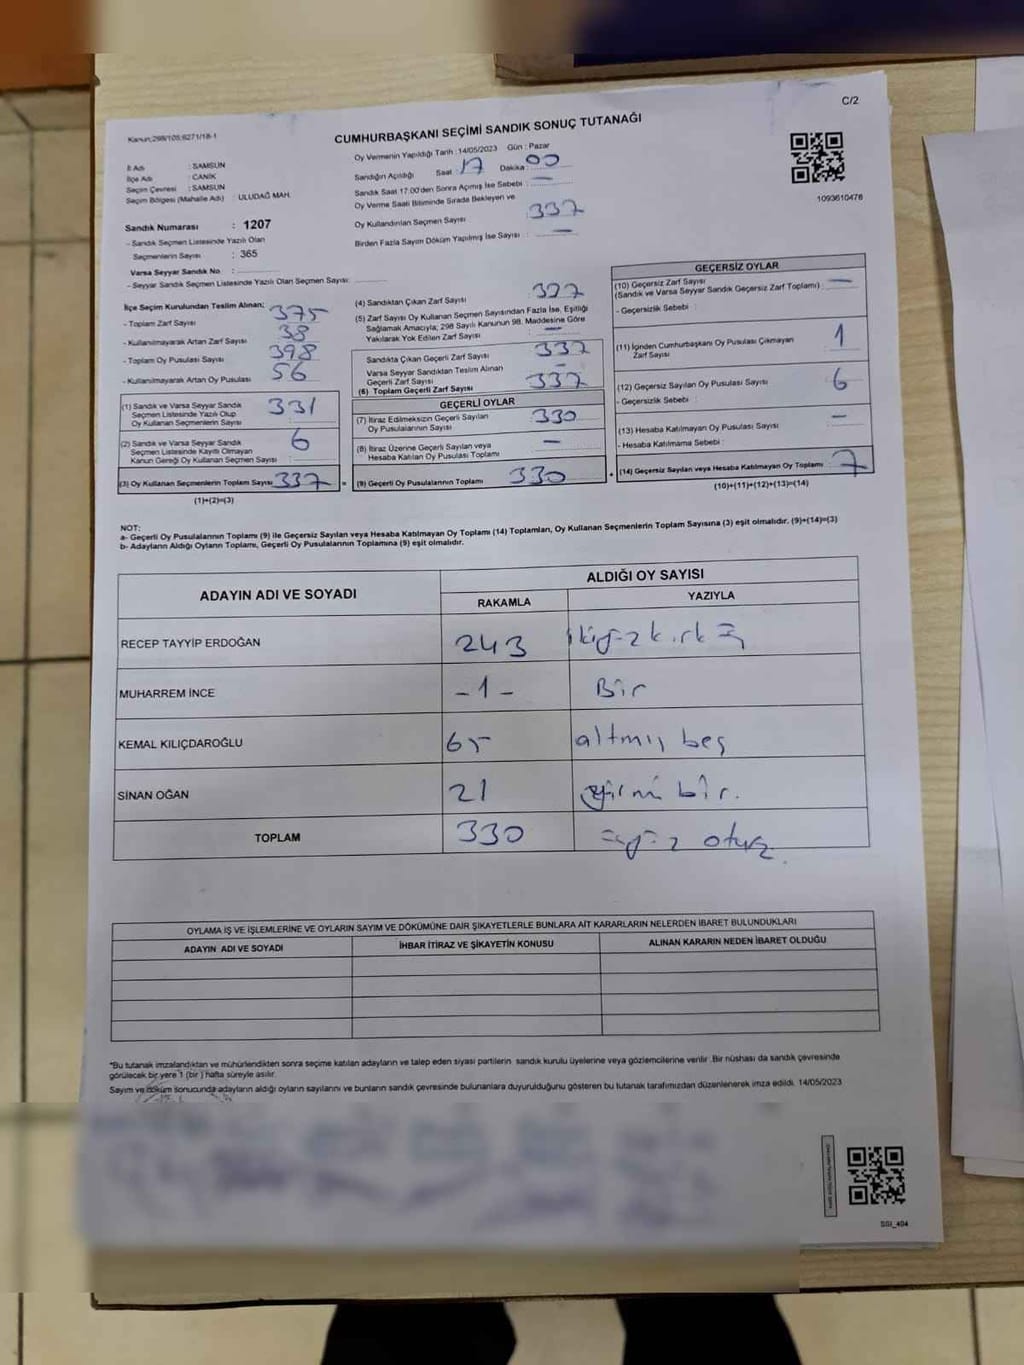 C/2
Kanun:298/105;6271/18-1
CUMHURBAŞKANI SEÇİMİ SANDIK SONUÇ TUTANAĞI
İl Adı : SAMSUN
İlçe Adı : CANİK
Seçim Çevresi : SAMSUN
Seçim Bölgesi (Mahalle Adı) : ULUDAĞ MAH.
Sandık Numarası : 1207
- Sandık Seçmen Listesinde Yazılı Olan
Seçmenlerin Sayısı : 365
Varsa Seyyar Sandık No :
- Seyyar Sandık Seçmen Listesinde Yazılı Olan Seçmen Sayısı:
Oy Vermenin Yapıldığı Tarih :14/05/2023 Gün : Pazar
Sandığın Açıldığı Saat : 17 Dakika : 00
Sandık Saat 17:00'den Sonra Açmış İse Sebebi : —
Oy Verme Saati Bitiminde Sırada Bekleyen ve
Oy Kullandırılan Seçmen Sayısı : 337
Birden Fazla Sayım Döküm Yapılmış İse Sayısı : —
1093610476
İlçe Seçim Kurulundan Teslim Alınan;
- Toplam Zarf Sayısı 375
- Kullanılmayarak Artan Zarf Sayısı 38
- Toplam Oy Pusulası Sayısı 398
- Kullanılmayarak Artan Oy Pusulası 56
(1) Sandık ve Varsa Seyyar Sandık
Seçmen Listesinde Yazılı Olup
Oy Kullanan Seçmenlerin Sayısı : 331
(2) Sandık ve Varsa Seyyar Sandık
Seçmen Listesinde Kayıtlı Olmayan
Kanun Gereği Oy Kullanan Seçmen Sayısı : 6
(3) Oy Kullanan Seçmenlerin Toplam Sayısı 337
(1)+(2)=(3)
(4) Sandıktan Çıkan Zarf Sayısı : 337
(5) Zarf Sayısı Oy Kullanan Seçmen Sayısından Fazla İse, Eşitliği
Sağlamak Amacıyla; 298 Sayılı Kanunun 98. Maddesine Göre
Yakılarak Yok Edilen Zarf Sayısı : —
Sandıkta Çıkan Geçerli Zarf Sayısı : 337
Varsa Seyyar Sandıktan Teslim Alınan
Geçerli Zarf Sayısı : —
(6) Toplam Geçerli Zarf Sayısı : 337
GEÇERLİ OYLAR
(7) İtiraz Edilmeksizin Geçerli Sayılan
Oy Pusulalarının Sayısı : 330
(8) İtiraz Üzerine Geçerli Sayılan veya
Hesaba Katılan Oy Pusulası Toplamı : —
(9) Geçerli Oy Pusulalarının Toplamı : 330
GEÇERSİZ OYLAR
(10) Geçersiz Zarf Sayısı
(Sandık ve Varsa Seyyar Sandık Geçersiz Zarf Toplamı) : —
- Geçersizlik Sebebi :
(11) İçinden Cumhurbaşkanı Oy Pusulası Çıkmayan
Zarf Sayısı : 1
(12) Geçersiz Sayılan Oy Pusulası Sayısı : 6
- Geçersizlik Sebebi :
(13) Hesaba Katılmayan Oy Pusulası Sayısı : —
- Hesaba Katılmama Sebebi :
(14) Geçersiz Sayılan veya Hesaba Katılmayan Oy Toplamı : 7
(10)+(11)+(12)+(13)=(14)
NOT:
a- Geçerli Oy Pusulalarının Toplamı (9) ile Geçersiz Sayılan veya Hesaba Katılmayan Oy Toplamı (14) Toplamları, Oy Kullanan Seçmenlerin Toplam Sayısına (3) eşit olmalıdır. (9)+(14)=(3)
b- Adayların Aldığı Oyların Toplamı, Geçerli Oy Pusulalarının Toplamına (9) eşit olmalıdır.
ADAYIN ADI VE SOYADI ALDIĞI OY SAYISI
RAKAMLA YAZIYLA
RECEP TAYYİP ERDOĞAN 243 ikiyüzkırküç
MUHARREM İNCE -1- Bir
KEMAL KILIÇDAROĞLU 65 altmış beş
SİNAN OĞAN 21 yirmi bir.
TOPLAM 330 üçyüz otuz.
OYLAMA İŞ VE İŞLEMLERİNE VE OYLARIN SAYIM VE DÖKÜMÜNE DAİR ŞİKAYETLERLE BUNLARA AİT KARARLARIN NELERDEN İBARET BULUNDUKLARI
ADAYIN ADI VE SOYADI İHBAR İTİRAZ VE ŞİKAYETİN KONUSU ALINAN KARARIN NEDEN İBARET OLDUĞU
*Bu tutanak imzalandıktan ve mühürlendikten sonra seçime katılan adayların ve talep eden siyasi partilerin sandık kurulu üyelerine veya gözlemcilerine verilir. Bir nüshası da sandık çevresinde
görülecek bir yere 1 (bir) hafta süreyle asılır.
Sayım ve döküm sonucunda adayların aldığı oyların sayılarını ve bunların sandık çevresinde bulunanlara duyurulduğunu gösteren bu tutanak tarafımızdan düzenlenerek imza edildi. 14/05/2023
SGI_404